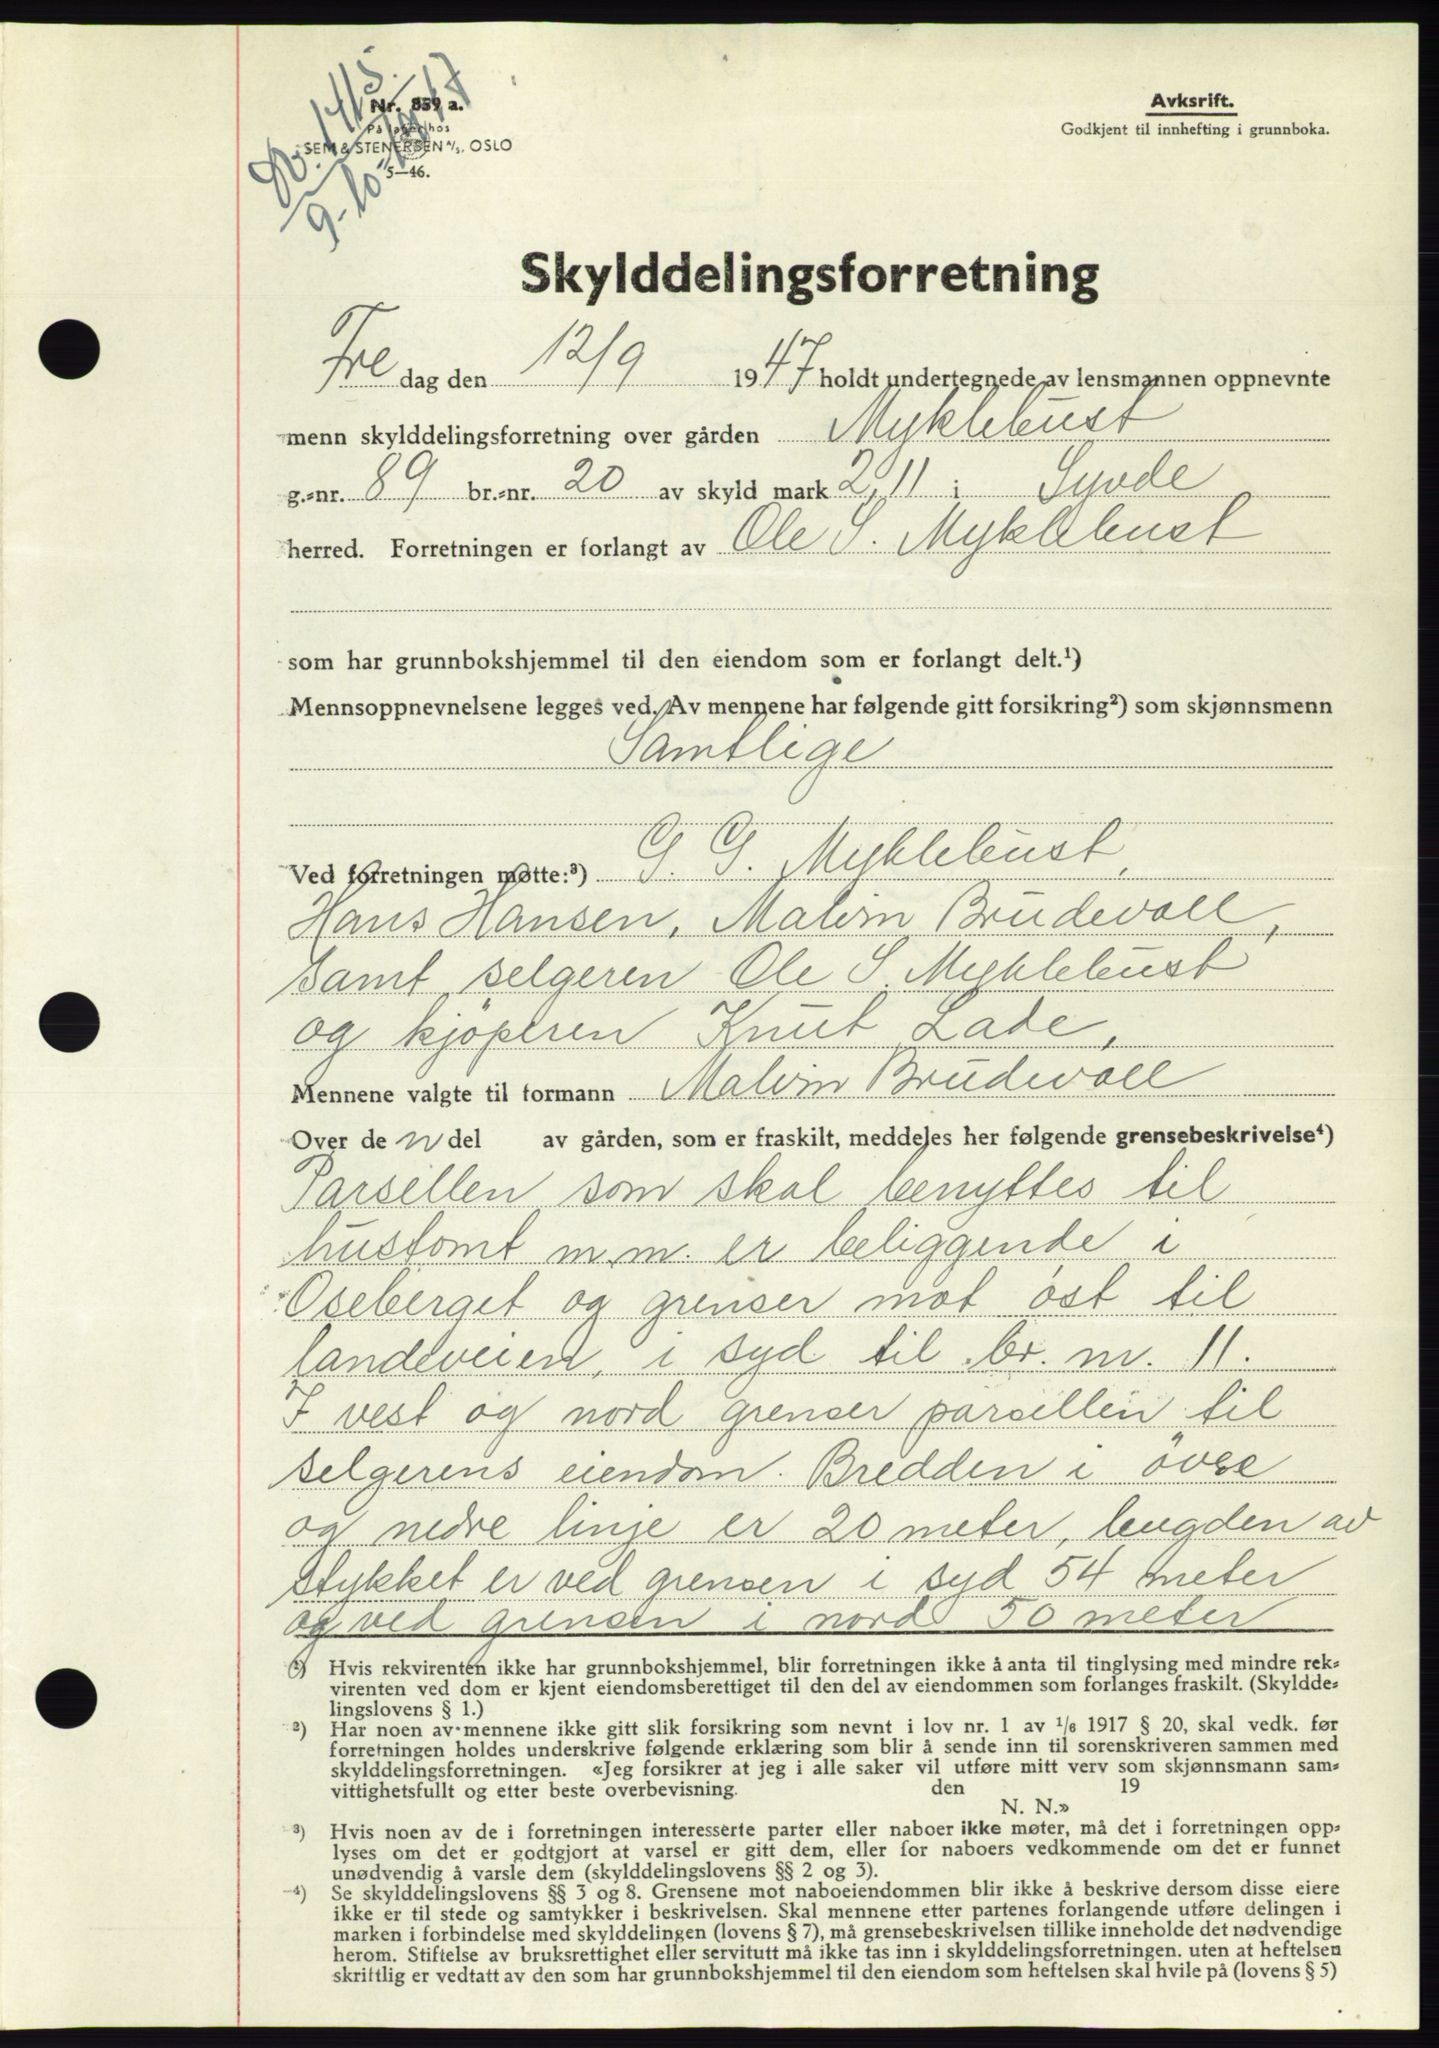 Nr. 1415.
9-10-1947
Nr. 859 a.
På lager hos
SEM & STENERSEN A/S, OSLO
5—46.
Avksrift.
Godkjent til innhefting i grunnboka.
Skylddelingsforretning
Fredag den 12/9 1947 holdt undertegnede av lensmannen oppnevnte
menn skylddelingsforretning over gården Myklebust
g.-nr. 89 br.-nr. 20 av skyld mark 2,11 i Syvde
herred. Forretningen er forlangt av Ole S. Myklebust
som har grunnbokshjemmel til den eiendom som er forlangt delt.¹)
Mennsoppnevnelsene legges ved. Av mennene har følgende gitt forsikring²) som skjønnsmenn
Samtlige
Ved forretningen møtte:³) G. G. Myklebust,
Hans Hansen, Malvin Brudevoll,
samt selgeren Ole S. Myklebust
og kjöperen Knut Lade,
Mennene valgte til formann Malvin Brudevoll
Over den del av gården, som er fraskilt, meddeles her følgende grensebeskrivelse⁴)
Parsellen som skal benyttes til
hustomt m.m. er beliggende i
Oseberget og grenser mot öst til
landeveien, i syd til br. nr. 11.
I vest og nord grenser parsellen til
selgerens eiendom. Bredden i övre
og nedre linje er 20 meter, lengden av
stykket er ved grensen i syd 54 meter
og ved grensen i nord 50 meter
¹) Hvis rekvirenten ikke har grunnbokshjemmel, blir forretningen ikke å anta til tinglysing med mindre rek-
virenten ved dom er kjent eiendomsberettiget til den del av eiendommen som forlanges fraskilt. (Skyldde-
lingslovens § 1.)
²) Har noen av mennene ikke gitt slik forsikring som nevnt i lov nr. 1 av 1/6 1917 § 20, skal vedk. før
forretningen holdes underskrive følgende erklæring som blir å sende inn til sorenskriveren sammen med
skylddelingsforretningen. «Jeg forsikrer at jeg i alle saker vil utføre mitt verv som skjønnsmann sam-
vittighetsfullt og etter beste overbevisning. den 19
N. N.»
³) Hvis noen av de i forretningen interesserte parter eller naboer ikke møter, må det i forretningen opp-
lyses om det er godtgjort at varsel er gitt dem, eller for naboers vedkommende om det er funnet
unødvendig å varsle dem (skylddelingslovens §§ 2 og 3).
⁴) Se skylddelingslovens §§ 3 og 8. Grensene mot naboeiendommen blir ikke å beskrive dersom disse eiere
ikke er til stede og samtykker i beskrivelsen. Skal mennene etter partenes forlangende utføre delingen i
marken i forbindelse med skylddelingen (lovens § 7), må grensebeskrivelsen tillike inneholde det nødvendige
herom. Stiftelse av bruksrettighet eller servitutt må ikke tas inn i skylddelingsforretningen. uten at heftelsen
skriftlig er vedtatt av den som har grunnbokshjemmel til den eiendom som heftelsen skal hvile på (lovens § 5)